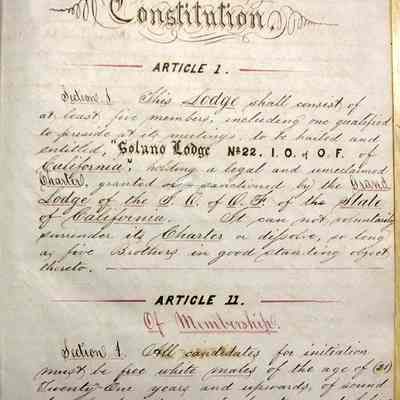 Constitution.
ARTICLE I.
Section 1. This Lodge shall consist of
at least five members, including one qualified
to preside at its meetings, to be hailed and
entitled, "Solano Lodge No. 22. I. O. of O. F. of
California", holding a legal and unreclaimed
Charter, granted or sanctioned by the Grand
Lodge of the I. O. of O. F. of the State
of California. It can not voluntarily
surrender its Charter or dissolve, so long
as five Brothers in good standing object
thereto.
ARTICLE II.
Of Membership.
Section 1. All candidates for initiation
must be free white males of the age of (21)
Twenty-One years and upwards, of sound